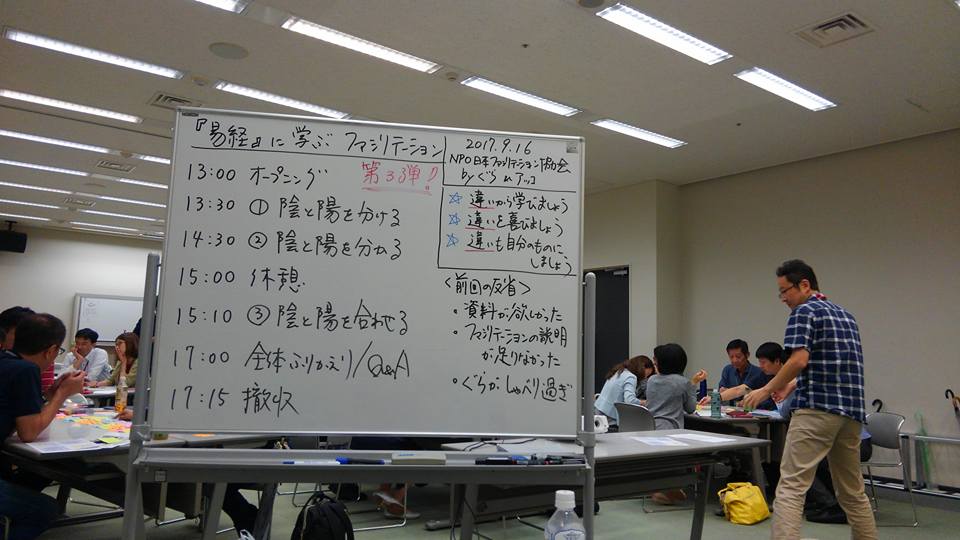 『易経』に学ぶ ファシリテーション
第3弾!!
13:00 オープニング
13:30 ① 陰と陽を分ける
14:30 ② 陰と陽を分ねる
15:00 休憩
15:10 ③ 陰と陽を合わせる
17:00 全体ふりかえり/Q&A
17:15 撤収
2017.9.16
NPO日本ファシリテーション協会
by ぐら & アッコ
☆ 違いから学びましょう
☆ 違いを喜びましょう
☆ 違いも自分のものに
しましょう
<前回の反省>
・資料が欲しかった
・ファシリテーションの説明
が足りなかった
・ぐらがしゃべり過ぎ